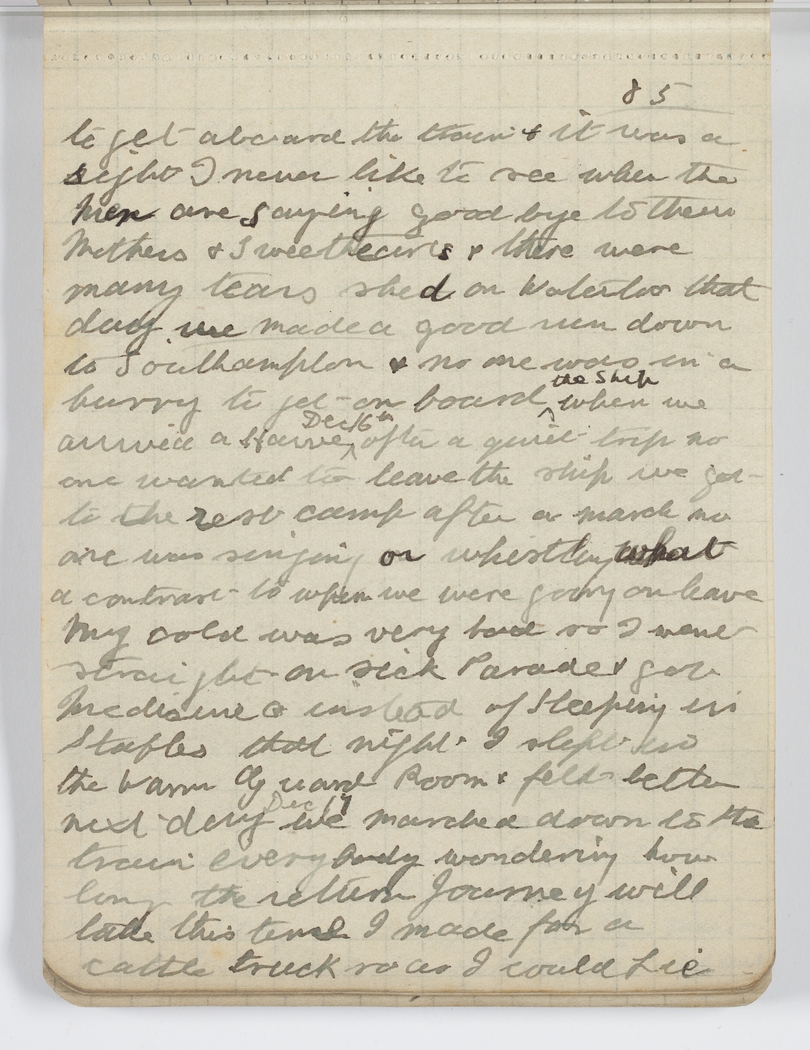 85
to get aboard the train & it was a
sight I never like to see when the
Men are saying good bye to their
Mothers & Sweethearts & there were
many tears shed on Waterloo that
day we made a good run down
to Southampton & no one was in a
hurry to get on board ^the Ship when we
arrived a Havre ^Dec 16th after a quiet trip no
one wanted to leave the ship we got
to the rest camp after a march no
one was singing or whistling what
a contrast to when we were going on leave
My cold was very bad so I went
straight on sick Parade & got
Medisine & instead of Sleeping in
Stables that night I slept in
the Warm Guard Room & felt better
next day Dec 17 we marched down to the
train everybody wondering how
long the return Journey will
take this time I made for a
cattle truck so as I could Lie